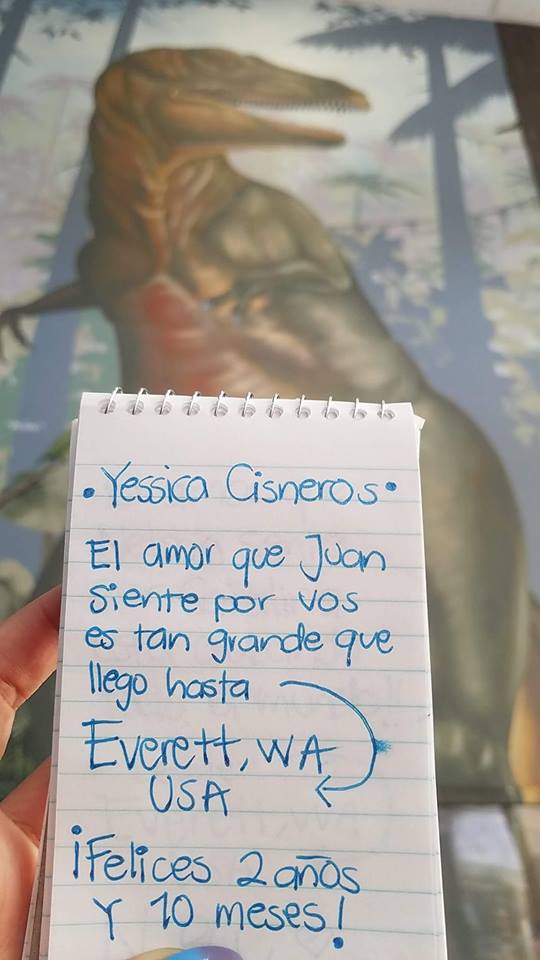 • Yessica Cisneros •
El amor que Juan
siente por vos
es tan grande que
llego hasta
Everett, WA
USA
¡Felices 2 años
Y 10 meses!